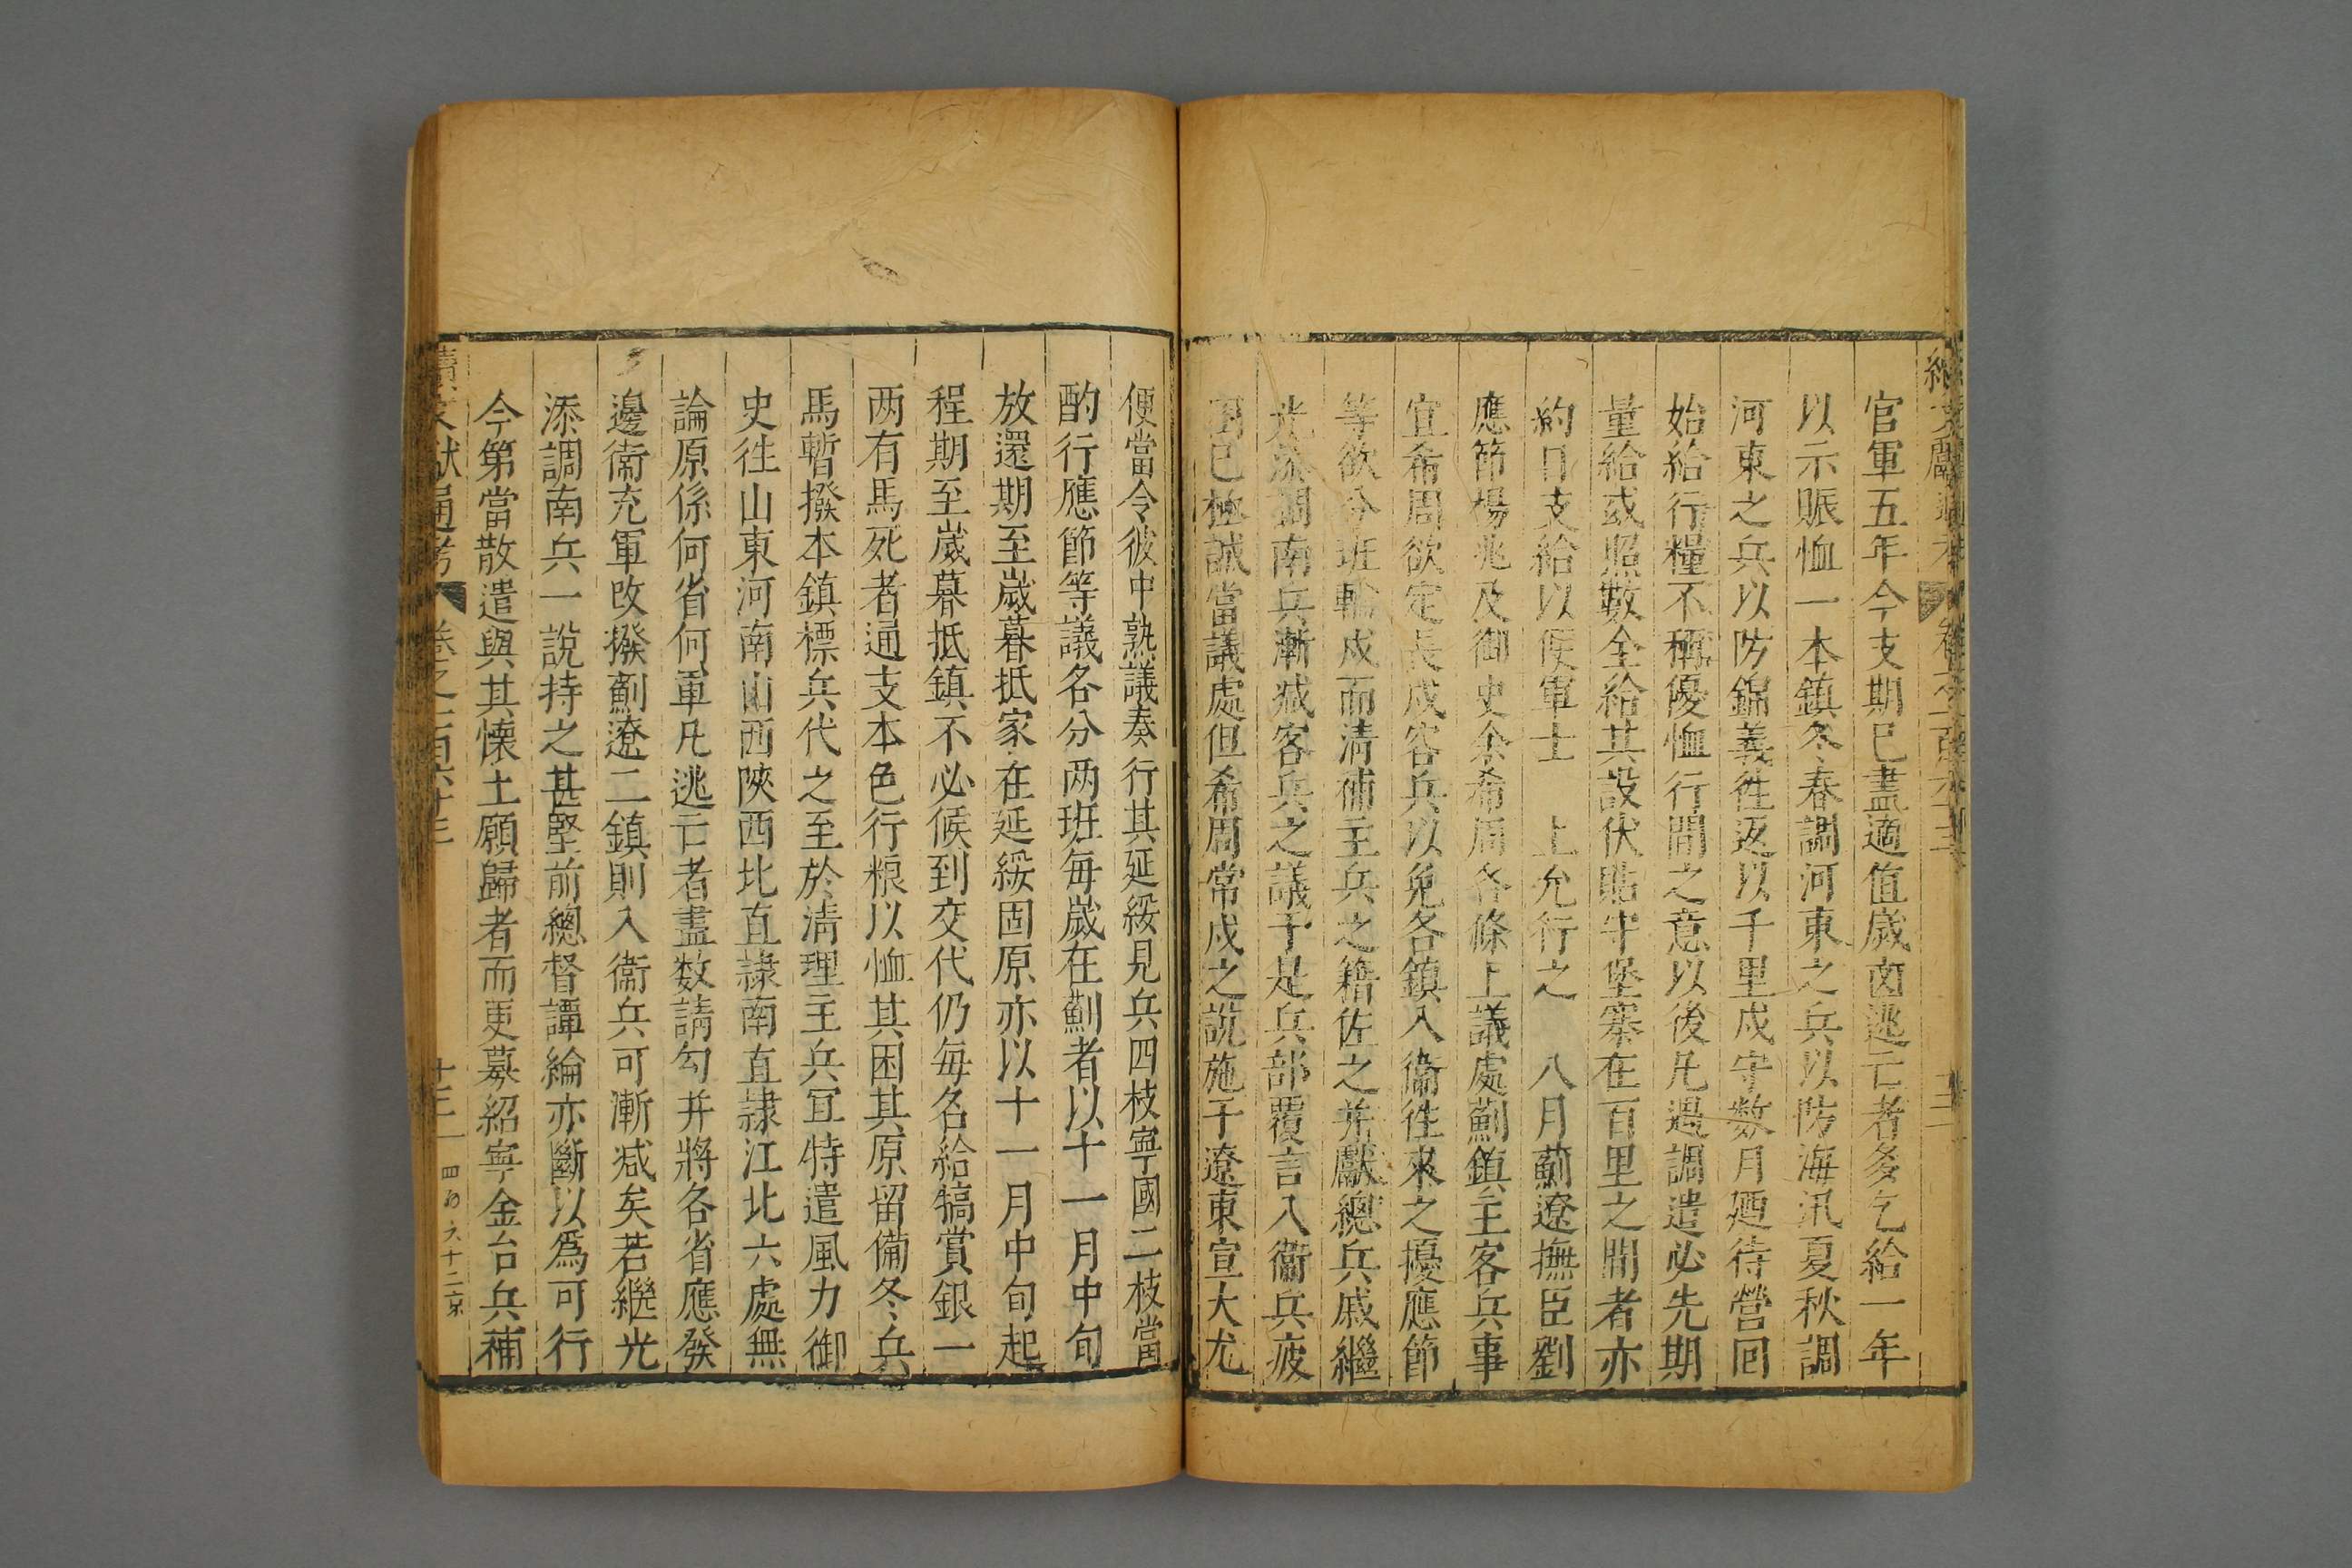 官軍五年今支期已盡適值歲卤逃亡者多乞給一年
以示賑恤一本鎮冬春調河東之兵以防海汛夏秋調
河東之兵以防錦義徃返以千里戍守数月廼待營囘
始給行糧不稱優恤行間之意以後凡遇調遣必先期
量給或照數全給其設伏貼守堡寨在百里之間者亦
約日支給以便軍士 上允行之 八月薊遼撫臣劉
應節楊兆及御史余希周各條上議處薊鎮主客兵事
宜希周欲定長戍客兵以免各鎮入衞徃來之擾應節
等欲令班輪戍而清補主兵之籍佐之并獻總兵戚繼
光添調南兵漸减客兵之議于是兵部覆言入衞兵疲
困已極誠當議處但希周常戍之說施于遼東宣大尤
便當令彼中熟議奏行其延綏見兵四枝寧國二枝當
酌行應節等議各分两班毎歲在薊者以十一月中旬
放還期至歲暮抵家在延綏固原亦以十一月中旬起
程期至歲暮抵鎮不必候到交代仍毎名給犒賞銀一
两有馬死者通支本色行粮以恤其困其原留備冬兵
馬暫撥本鎮標兵代之至於清理主兵宜特遣風力御
史徃山東河南山西陝西北直隷南直隷江北六處無
論原係何省何軍凡逃亡者盡数請勾并將各省應發
邊衞充軍改撥薊遼二鎮則入衞兵可漸减矣若繼光
添調南兵一說持之甚堅前總督譚綸亦斷以爲可行
今第當散遣與其懐土願歸者而更募紹寧金台兵補